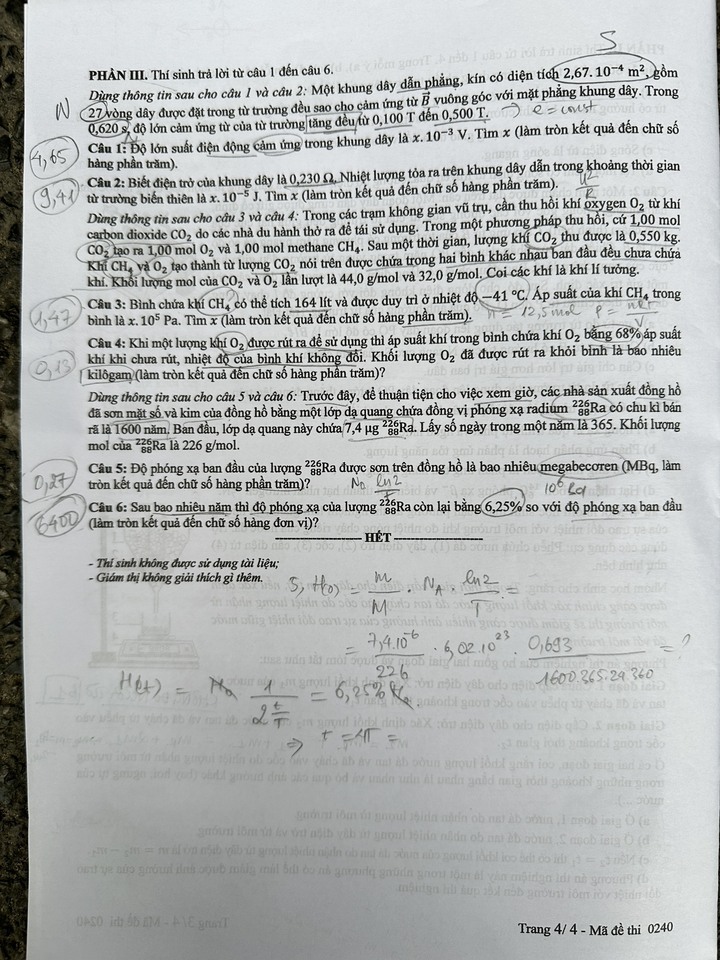 S
PHẦN III. Thí sinh trả lời từ câu 1 đến câu 6.
Dùng thông tin sau cho câu 1 và câu 2: Một khung dây dẫn phẳng, kín có diện tích 2,67.10⁻⁴ m², gồm
N
27 vòng dây được đặt trong từ trường đều sao cho cảm ứng từ B⃗ vuông góc với mặt phẳng khung dây. Trong
0,620 s, độ lớn cảm ứng từ của từ trường tăng đều từ 0,100 T đến 0,500 T. → e = const
4,65
Câu 1: Độ lớn suất điện động cảm ứng trong khung dây là x.10⁻³ V. Tìm x (làm tròn kết quả đến chữ số
hàng phần trăm).
9,41
Câu 2: Biết điện trở của khung dây là 0,230 Ω. Nhiệt lượng tỏa ra trên khung dây dẫn trong khoảng thời gian
từ trường biến thiên là x.10⁻⁵ J. Tìm x (làm tròn kết quả đến chữ số hàng phần trăm).
Dùng thông tin sau cho câu 3 và câu 4: Trong các trạm không gian vũ trụ, cần thu hồi khí oxygen O₂ từ khí
carbon dioxide CO₂ do các nhà du hành thở ra để tái sử dụng. Trong một phương pháp thu hồi, cứ 1,00 mol
CO₂ tạo ra 1,00 mol O₂ và 1,00 mol methane CH₄. Sau một thời gian, lượng khí CO₂ thu được là 0,550 kg.
Khí CH₄ và O₂ tạo thành từ lượng CO₂ nói trên được chứa trong hai bình khác nhau ban đầu đều chưa chứa
khí. Khối lượng mol của CO₂ và O₂ lần lượt là 44,0 g/mol và 32,0 g/mol. Coi các khí là khí lí tưởng.
1,47
Câu 3: Bình chứa khí CH₄ có thể tích 164 lít và được duy trì ở nhiệt độ −41 °C. Áp suất của khí CH₄ trong
bình là x.10⁵ Pa. Tìm x (làm tròn kết quả đến chữ số hàng phần trăm). n = 12,5mol
0,13
Câu 4: Khi một lượng khí O₂ được rút ra để sử dụng thì áp suất khí trong bình chứa khí O₂ bằng 68% áp suất
khí khi chưa rút, nhiệt độ của bình khí không đổi. Khối lượng O₂ đã được rút ra khỏi bình là bao nhiêu
kilôgam (làm tròn kết quả đến chữ số hàng phần trăm)?
Dùng thông tin sau cho câu 5 và câu 6: Trước đây, để thuận tiện cho việc xem giờ, các nhà sản xuất đồng hồ
đã sơn mặt số và kim của đồng hồ bằng một lớp dạ quang chứa đồng vị phóng xạ radium ²²⁶₈₈Ra có chu kì bán
rã là 1600 năm. Ban đầu, lớp dạ quang này chứa 7,4 μg ²²⁶₈₈Ra. Lấy số ngày trong một năm là 365. Khối lượng
mol của ²²⁶₈₈Ra là 226 g/mol.
0,27
Câu 5: Độ phóng xạ ban đầu của lượng ²²⁶₈₈Ra được sơn trên đồng hồ là bao nhiêu megabecơren (MBq, làm
tròn kết quả đến chữ số hàng phần trăm)? N₀ ln2/T 10⁶ Bq
6400
Câu 6: Sau bao nhiêu năm thì độ phóng xạ của lượng ²²⁶₈₈Ra còn lại bằng 6,25% so với độ phóng xạ ban đầu
(làm tròn kết quả đến chữ số hàng đơn vị)?
HẾT
- Thí sinh không được sử dụng tài liệu;
- Giám thị không giải thích gì thêm.
5, H(0) = m/M . N_A . ln2/T =
= 7,4.10⁻⁶/226 . 6,02.10²³ . 0,693/1600.365.24.360 = ?
H(t) = N₀ 1/2^(t/T) = 6,25% N₀
⇒ t = 4T =
Trang 4/ 4 - Mã đề thi 0240